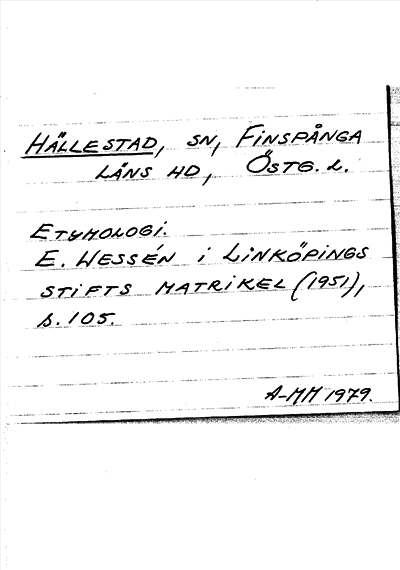 HÄLLESTAD, SN, FINSPÅNGA
LÄNS HD, ÖSTG. L.
ETYMOLOGI.
E. WESSÉN I LINKÖPINGS
STIFTS MATRIKEL (1951),
s. 105.
A-MM 1979.